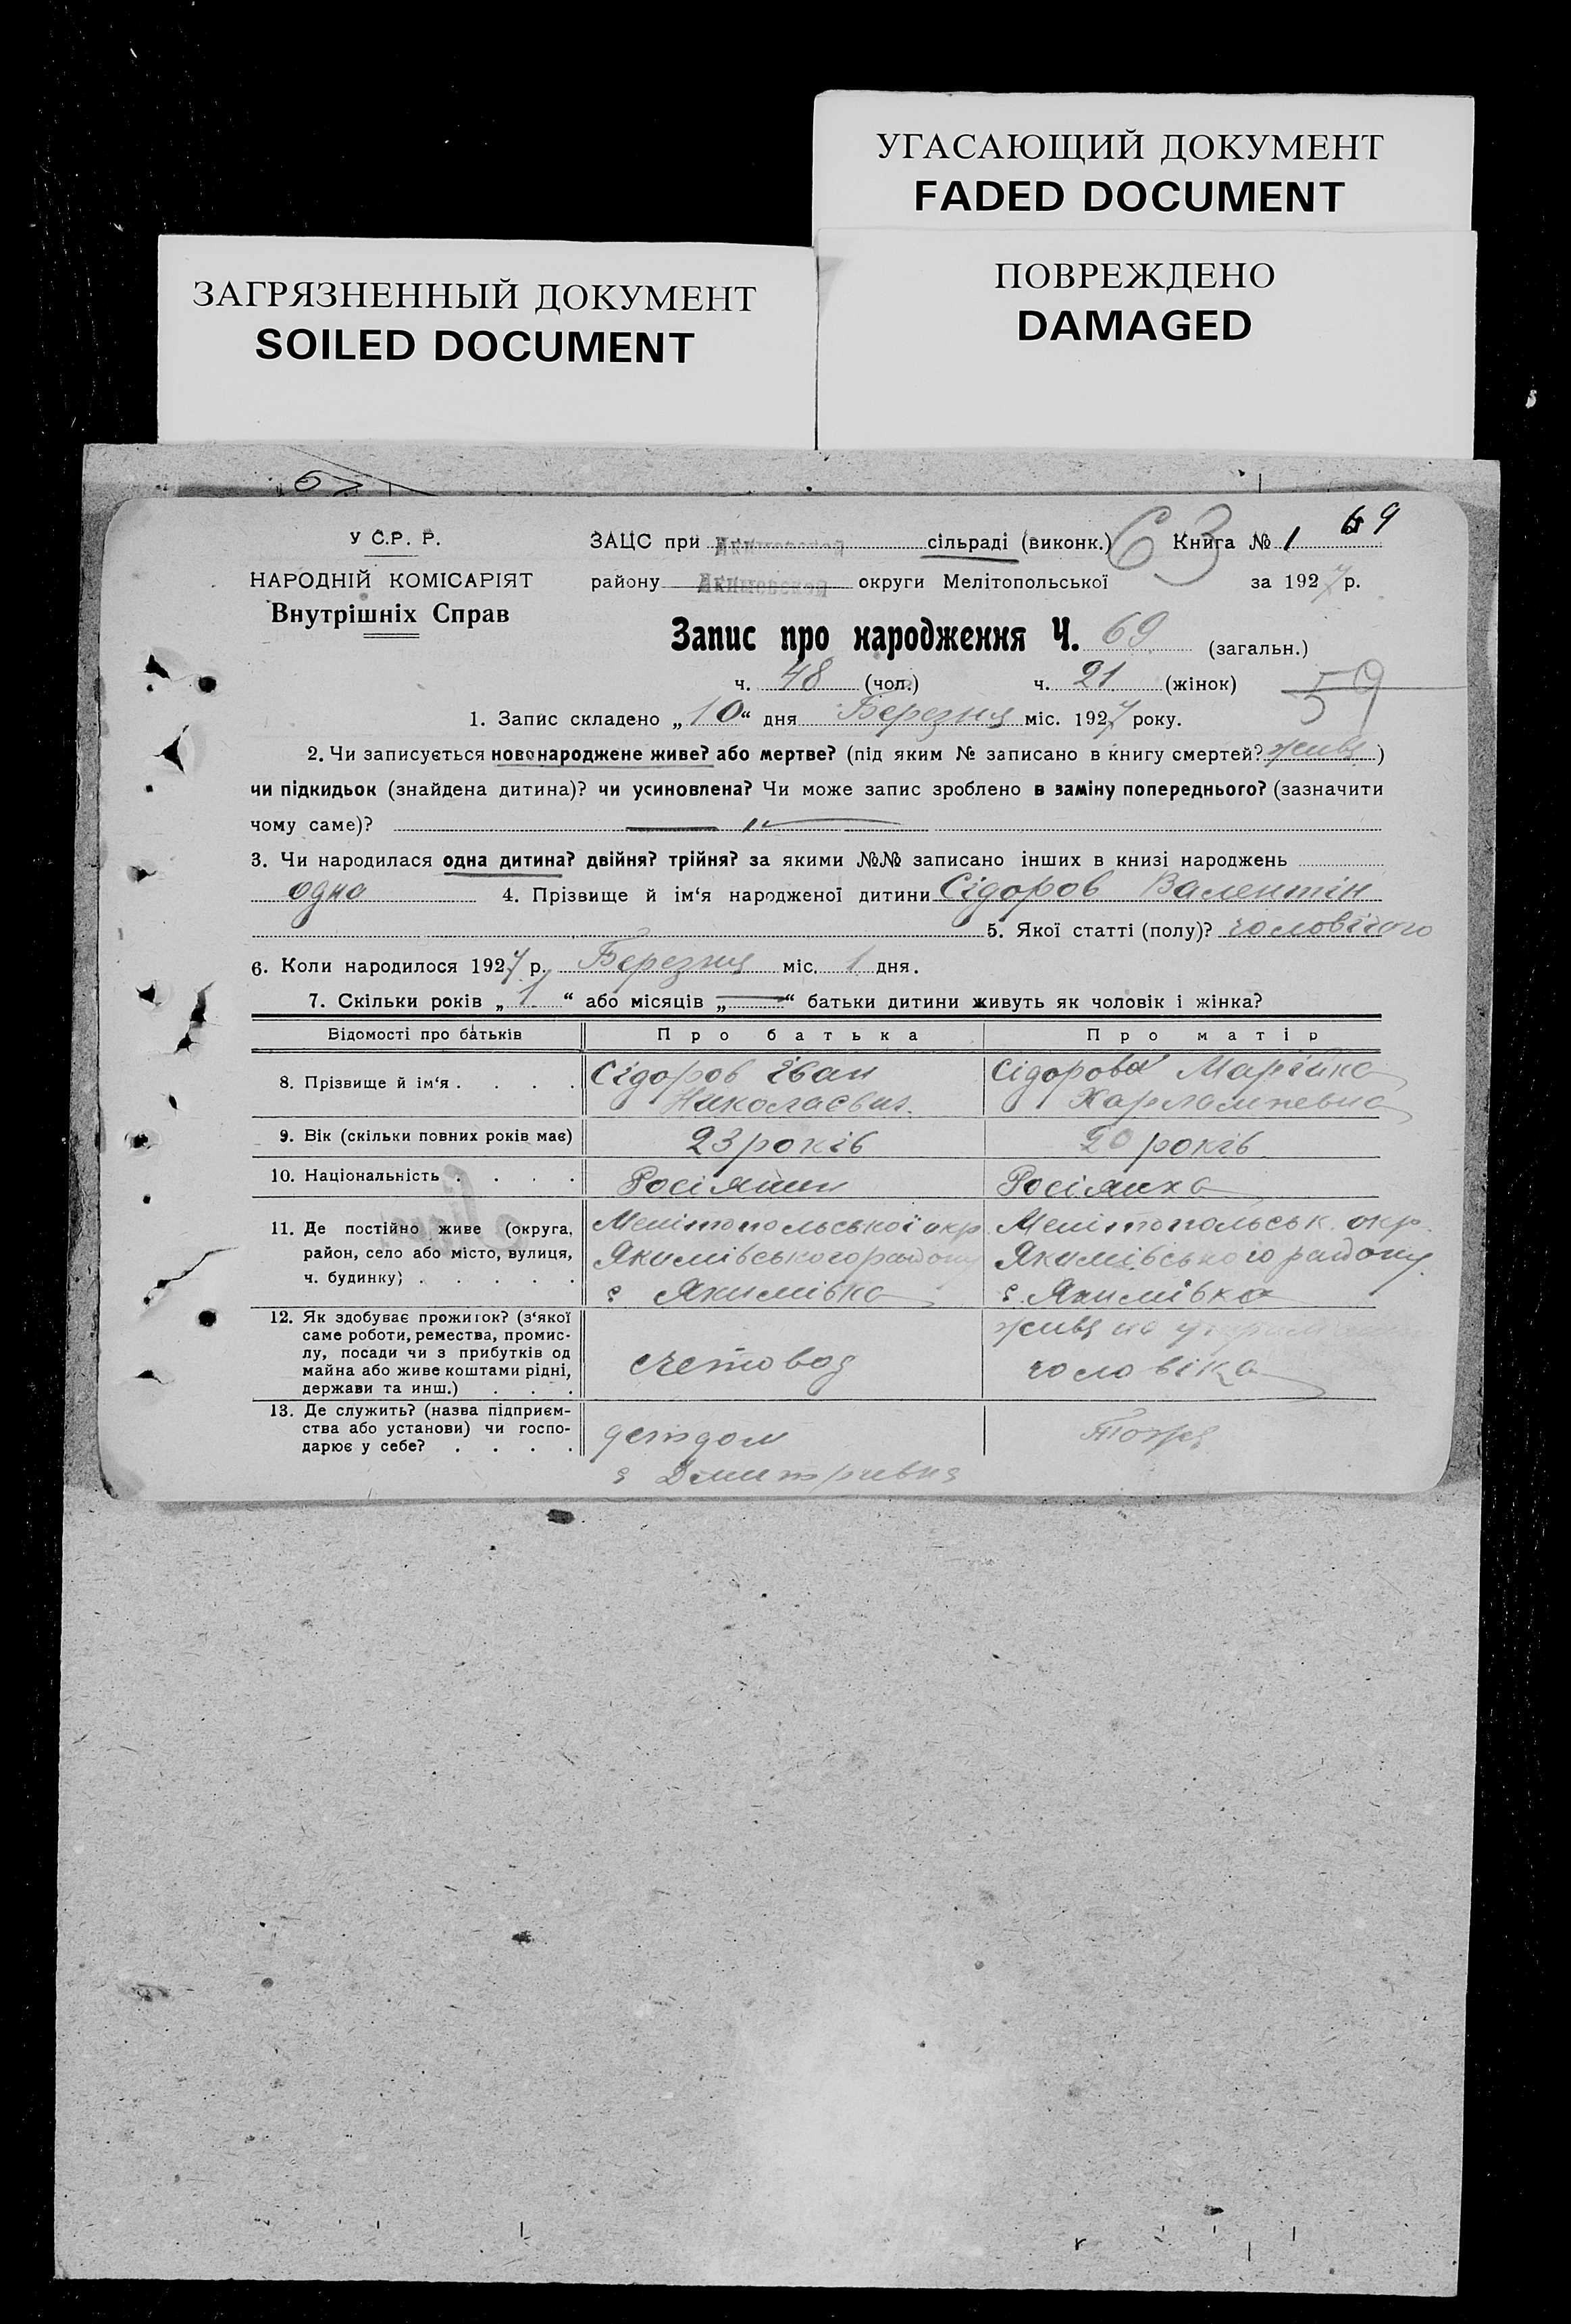 УГАСАЮЩИЙ ДОКУМЕНТ
FADED DOCUMENT
ЗАГРЯЗНЕННЫЙ ДОКУМЕНТ
SOILED DOCUMENT
ПОВРЕЖДЕНО
DAMAGED
69
У С.Р. Р.
ЗАЦС при Якимовской сільраді (виконк.) 63 Книга № 1
НАРОДНІЙ КОМІСАРІЯТ
району Якимовской округи Мелітопольської за 1927 р.
Внутрішніх Справ
Запис про народження Ч. 69 (загальн.)
ч. 48 (чол.) ч. 21 (жінок) 59
1. Запис складено „10“ дня Березня міс. 1927 року.
2. Чи записується новонароджене живе? або мертве? (під яким № записано в книгу смертей? живе)
чи підкидьок (знайдена дитина)? чи усиновлена? Чи може запис зроблено в заміну попереднього? (зазначити
чому саме)? — „ —
3. Чи народилася одна дитина? двійня? трійня? за якими №№ записано інших в книзі народжень
одна 4. Прізвище й ім‘я народженої дитини Сідоров Валентін
5. Якої статті (полу)? чоловічого
6. Коли народилося 1927 р. Березня міс. 1 дня.
7. Скільки років „1“ або місяців „—“ батьки дитини живуть як чоловік і жінка?
Відомості про батьків Про батька Про матір
8. Прізвище й ім‘я . . . . Сідоров Іван Сідорова Марійка
Николаевич. Харлампевна
9. Вік (скільки повних років має) 23 років 20 років
10. Національність . . . . Росіянин Росіянка
11. Де постійно живе (округа, Мелітопольської окр Мелітопольськ. окр.
район, село або місто, вулиця, Якимівського району Якимівського району
ч. будинку) . . . . . с Якимівка с. Якимівка
12. Як здобуває прожиток? (з‘якої живе на
саме роботи, ремества, промис-
лу, посади чи з прибутків од
майна або живе коштами рідні, счетовод чоловіка
держави та инш.) . . .
13. Де служить? (назва підприєм-
ства або установи) чи госпо- детдом Тоже
дарює у себе? . . . .
с